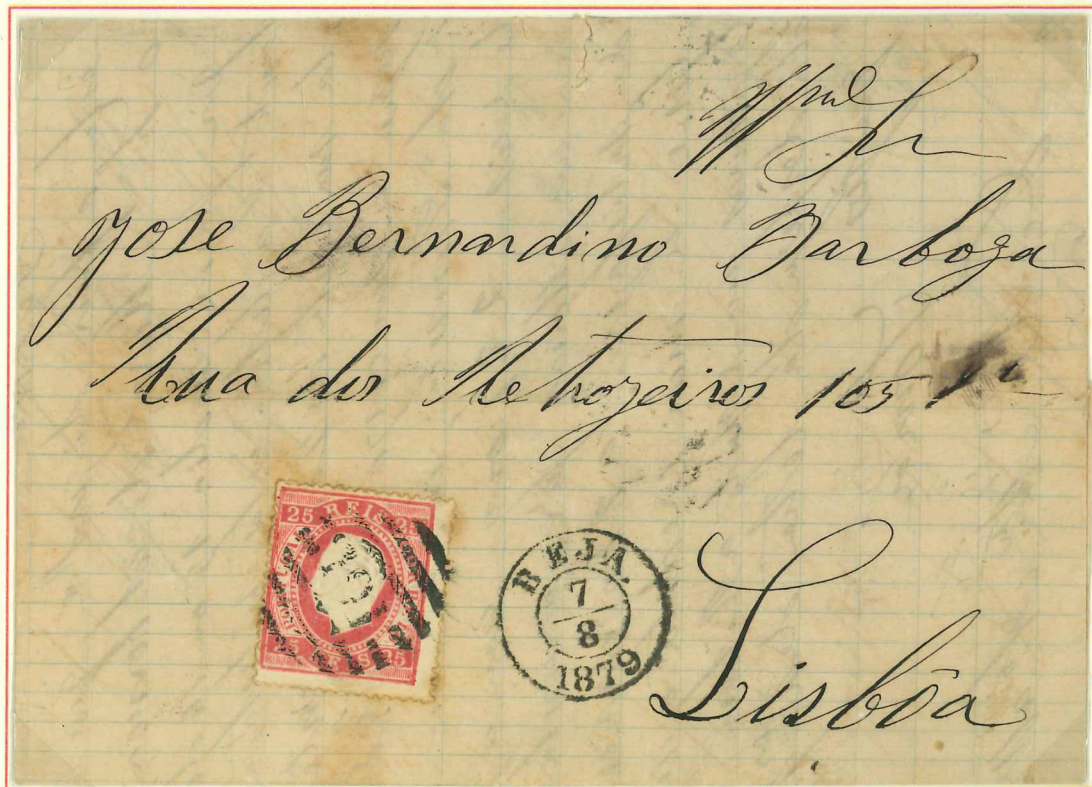 Illmo Sr
Jose Bernardino Barboza
Rua dos Retrozeiros 105 1º
Lisbôa
25 REIS 25
25 REIS 25
BEJA.
7
8
1879